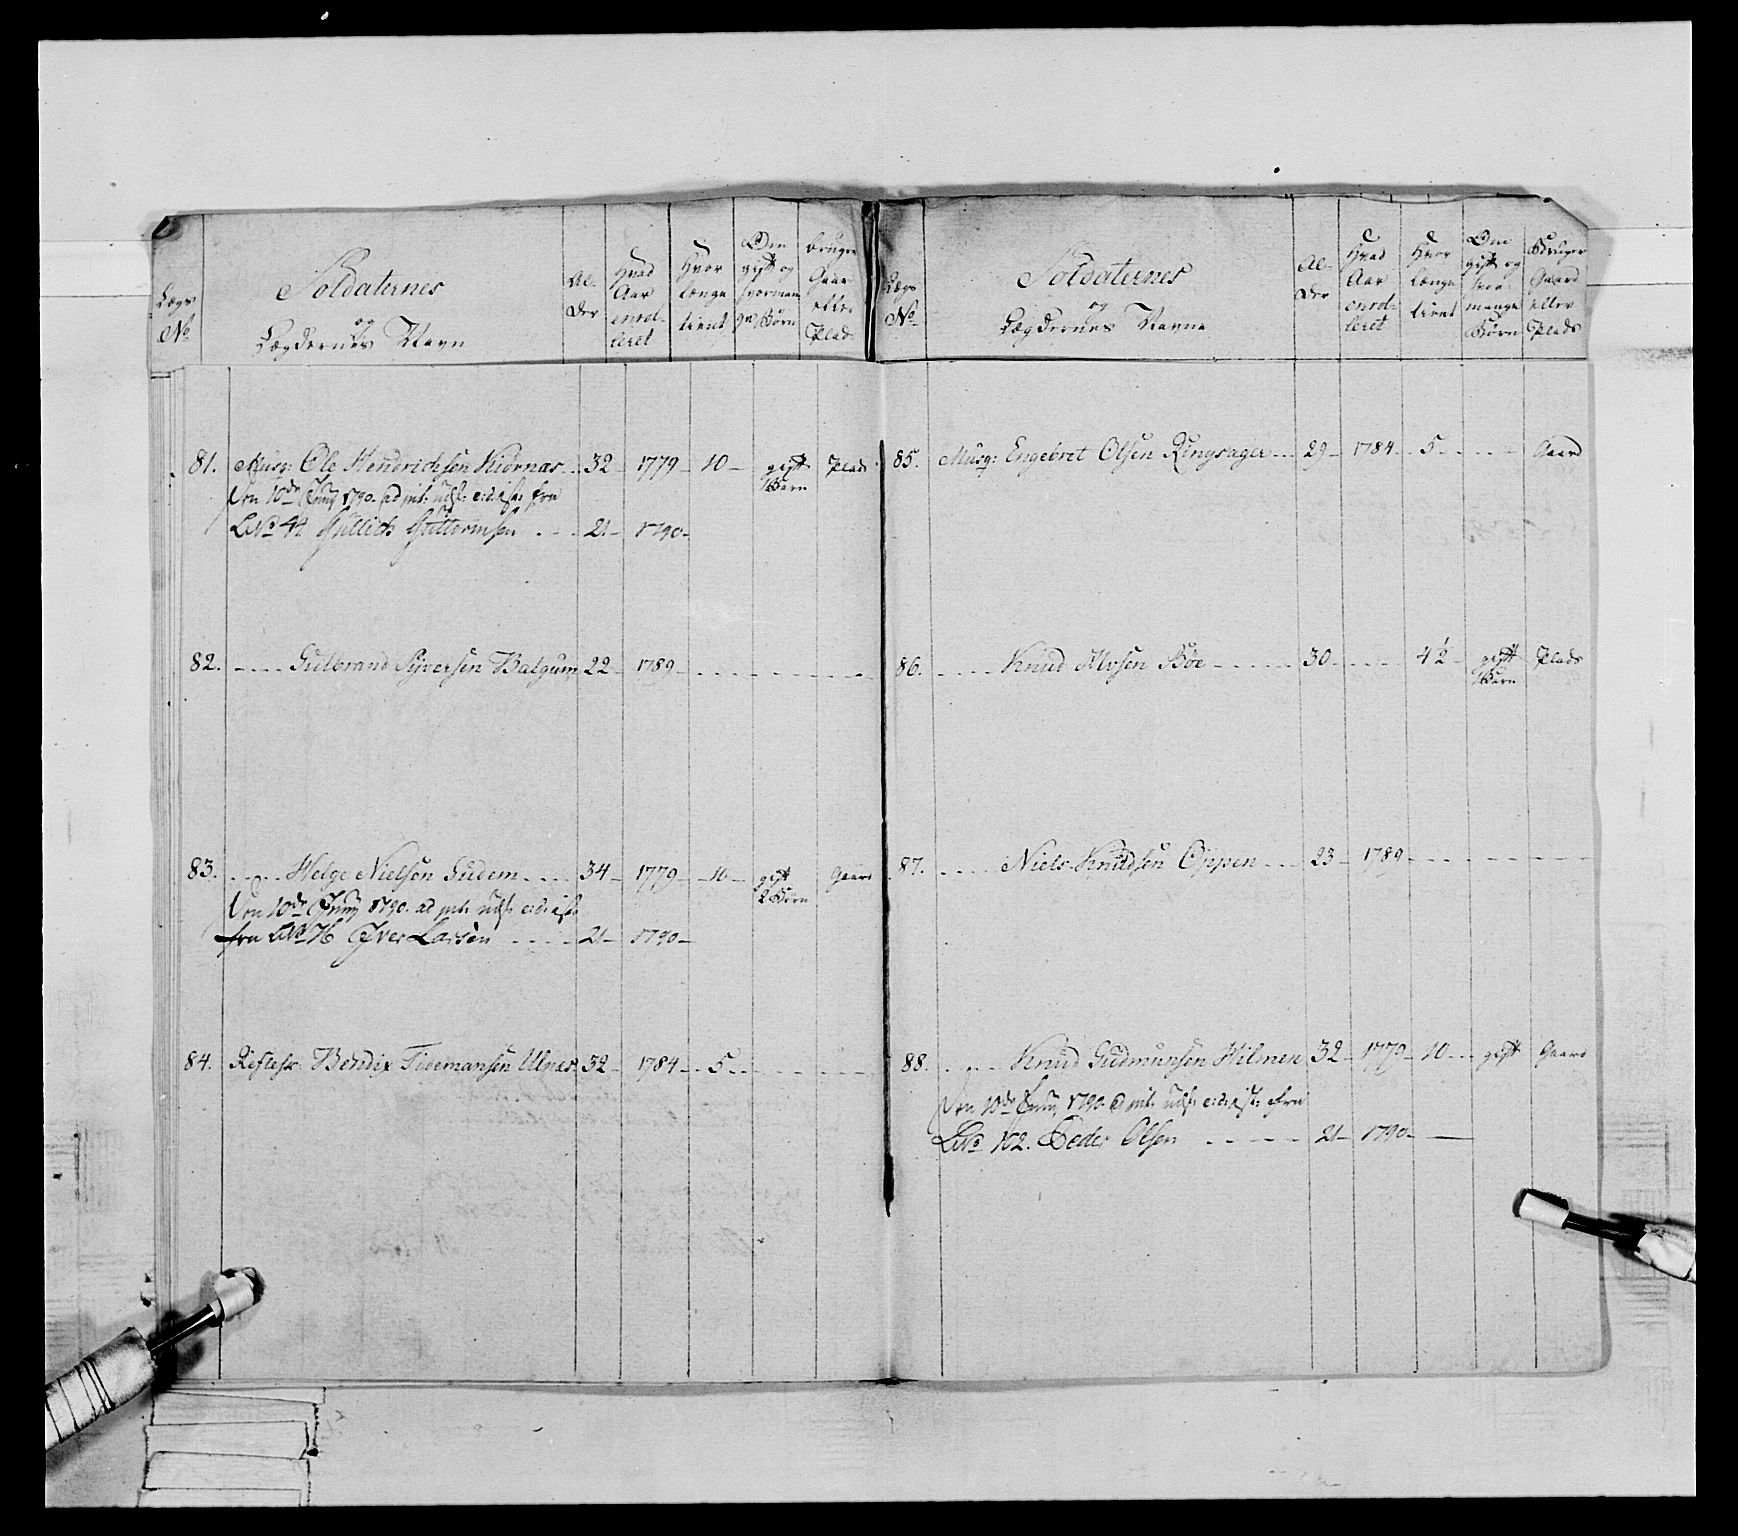 Lægs No
Soldaternes og Lægdernes Navn
Al-der
Hvad Aar enrol-leret
Hvor længe tient
Om gift og hvorman ge Børn
bruger Gaar eller Plads
81. Musq: Ole Hendrichsen Kiørnas 32 1779 10 gift 1 Barn Plads
Den 10de Juny 1790. ad mt: uds: fra
LNo 44 Gullich Guttormsen 21 1790
82. Gulbrand Syversen Balgum 22 1789
83. Helge Nielsen Gudem 34 1779 10 gift 2 Børn Gaard
Den 10de Juny 1790. ad mt: uds:
fra LNo 76 Iver Larsen 21 1790
84. Bendix Tidemansen Ulnes 32 1784 5
Lægs No
Soldaternes og Lægdernes Navne
Al-der
Hvad Aar enrol-leret
Hvor længe tient
Om gift og hvor mange Børn
Bruger Gaard eller Plads
85. Musq: Engebret Olsen Ringsager 29 1784 5 Gaard
86. Knud Alvsen Bøe 30 4½ gift 1 Barn Plads
87. Niels Knudsen Oppen 23 1789
88. Knud Gudmunsen Hilmen 32 1779 10 gift Gaard
Den 10de Juny 1790. ad mt: uds: fra
LNo 102. Peder Olsen 21 1790